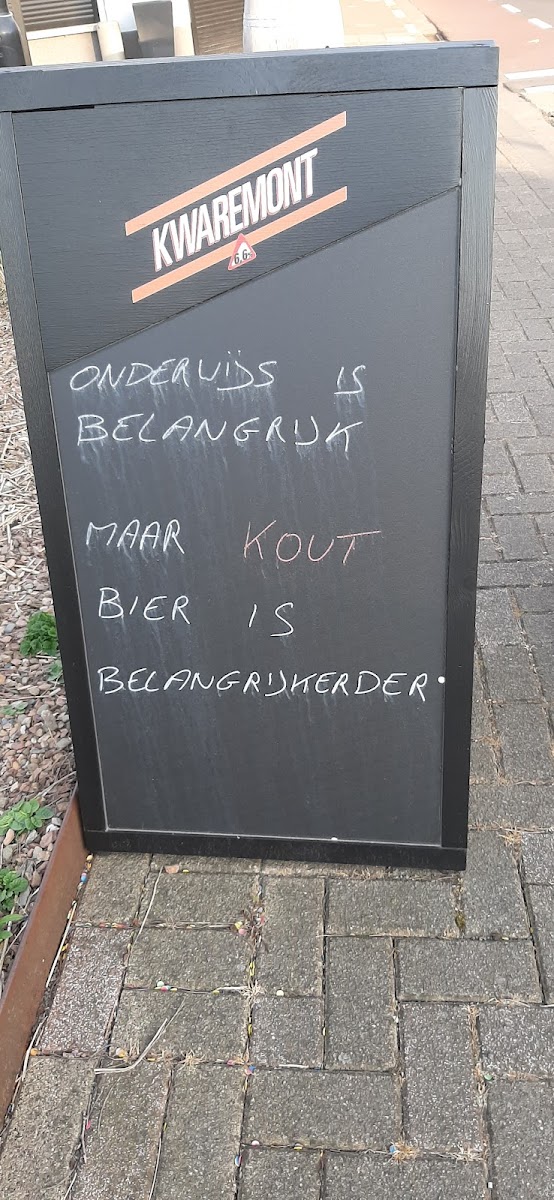 KWAREMONT
6,6%
ONDERWIJS IS
BELANGRIJK
MAAR KOUT
BIER IS
BELANGRIJKERDER